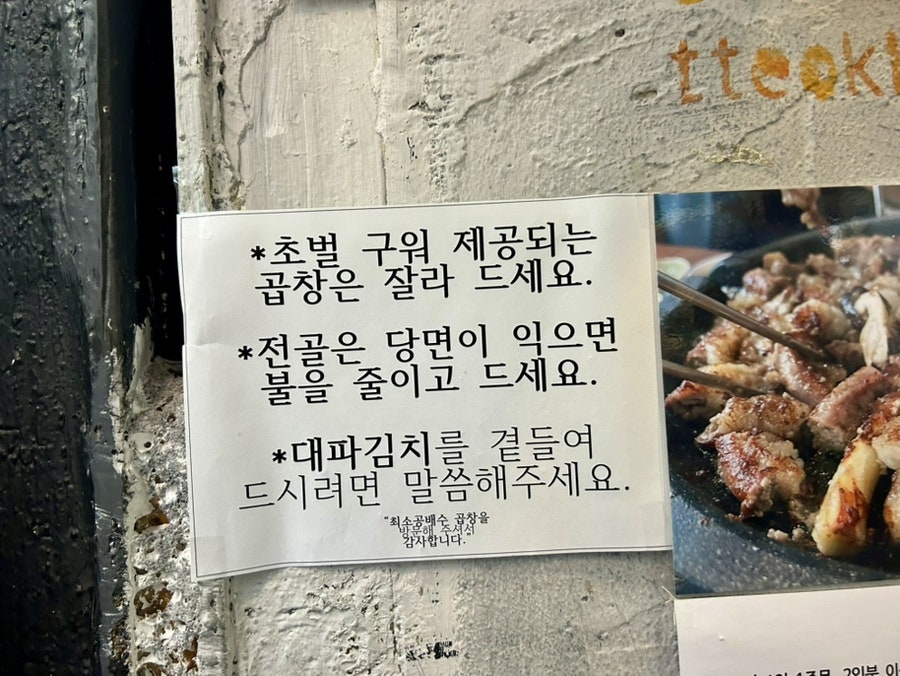 tteok
*초벌 구워 제공되는
곱창은 잘라 드세요.
*전골은 당면이 익으면
불을 줄이고 드세요.
*대파김치를 곁들여
드시려면 말씀해주세요.
"최소공배수 곱창을
방문해 주셔서
감사합니다."
2인분